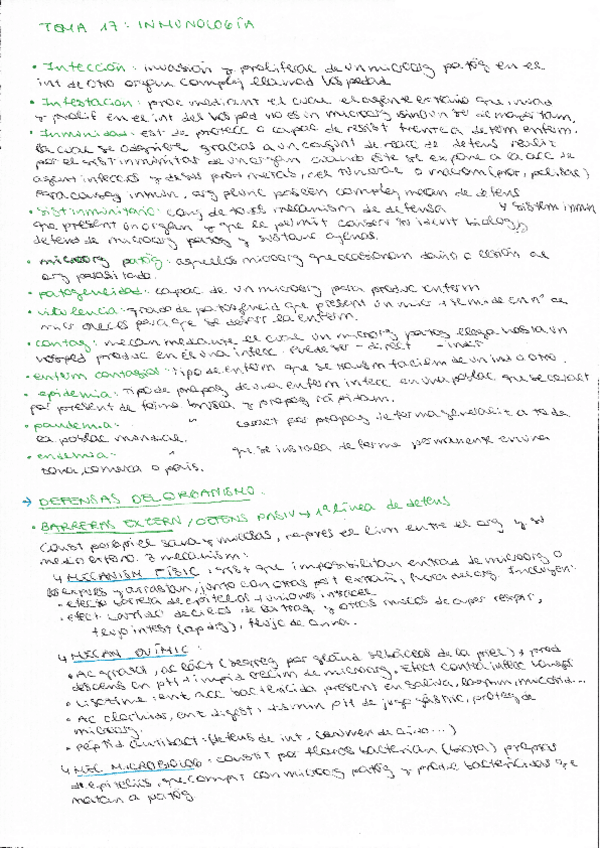 TEMA 17: INMUNOLOGÍA
• Infección: invasión y proliferac de un microorg patóg en el
int de otro organ complej llamad hosped
• Infestación: proc mediant el cual el agente extraño que invad
y prolif en el int del hosped no es un microorg sino un ser de mayor tam.
• Inmunidad: est de protecc o capac de resist frente a determ enferm.
la cual se adquiere gracias a un conjunt de reacc de defens realiz
por el sist inmunitar de un organ cuando éste se expone a la acc de
agent infeccios y de sus product
para causar inmun, org pluric poseen complej mecan de defens
• Sist inmunitario: conj de todos mecanism de defensa
que present un organ y que le permit conserv su ident biológ,
defens de microorg patog y sustanc ajenas.
• microorg patóg: aquellos microorg que ocasionan daño o lesión al
org parasitado.
• patogeneidad: capac de un microorg para produc enferm
• virulencia: grado de patogeneid que present un micr
micr para que se desarr la enferm.
• contag: mecan mediante el cual un microorg patog llega hasta un
hosped produc en él una infecc. Puede ser - direct - indir
• enferm contagios: tipo de enferm que se transm facilm de un ind a otro.
• epidemia: tipo de propag de una enferm infecc en una poblac. que se caract
por present de forma brusca y propag rápidam.
• pandemia: " caract por propag de forma generaliz a toda
la poblac mundial.
• endemia: " que se instala de forma permanente en una
zona, comarca o país.
→ DEFENSAS DEL ORGANISMO.
• BARRERAS EXTERN / DEFENS PASIV → 1ª línea de defens
Const por piel sana y mucosas, repres el lím entre el org y su
medio externo. 3 mecanism:
↳ MECANISM FÍSIC: sist que imposibilitan entrad de microorg o
los expuls y arrastran, junto con otras part extrañ, fuera del org. Incluyen:
- efecto barrera de epitelios + uniones
- efect barrido de cilios de la traq y otras mucos de aper respir,
flujo intest (rapdig), flujo de orina.
↳ MECAN QUÍMIC:
• Ac grasos, ac láct (segreg por glánd sebáceas de la piel) → prod
descens en pH + impid crecim de microorg. Efect contra infecc
• Lisozima: ent acc bactericida present en saliva, lágrim, mucosid...
• Ac clorhídr, enz digest: dismin pH de jugo gástric, proteg de
microorg.
• péptid antibact: defens de int. (
↳ MEC. MICROBIOLÓG: constit por flora bacterian (biota) propias
de epitelios, que compit con microorg patóg y produc bactericidas que
matan a patóg